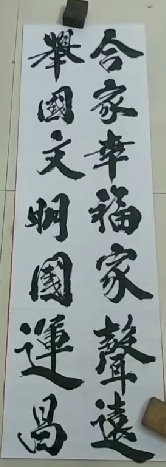 合家幸福家聲遠
舉國文明國運昌